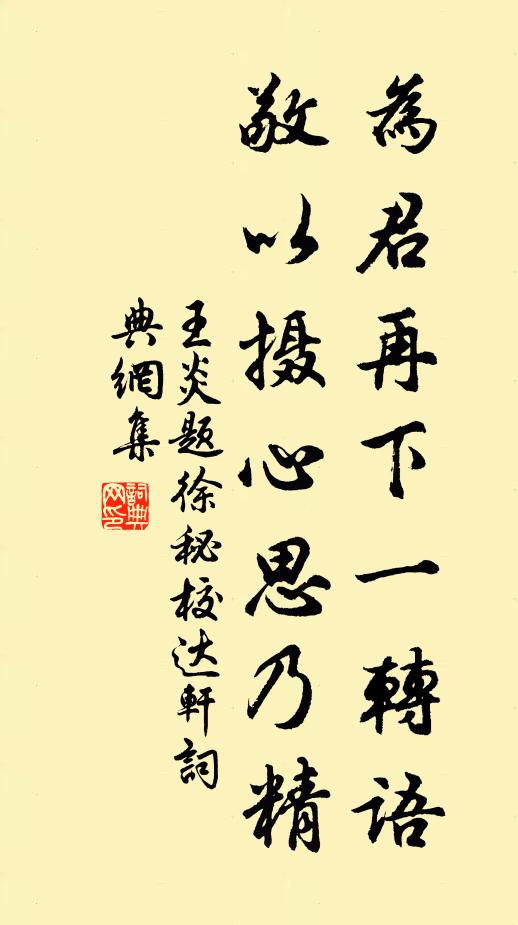 為君再下一轉語
敬以摄心思乃精
王炎题徐秘校达軒詞
典網集
詞典网印